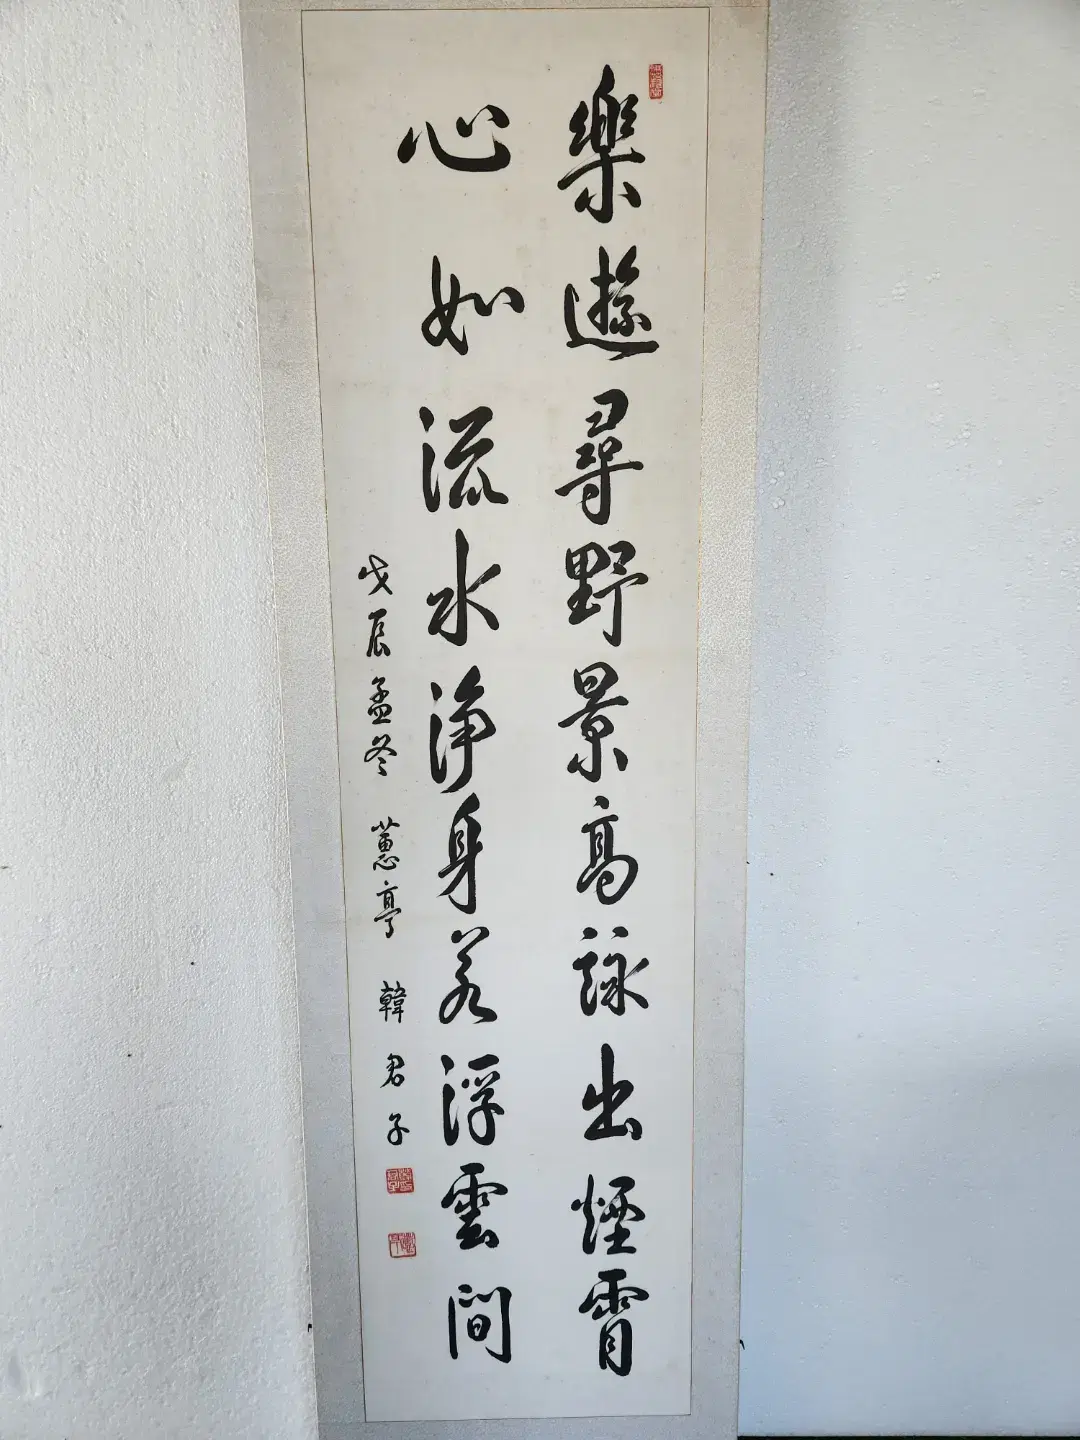 樂遊尋野景高詠出煙霄
心如流水淨身若浮雲間
戊辰孟冬 蕙亭 韓君子